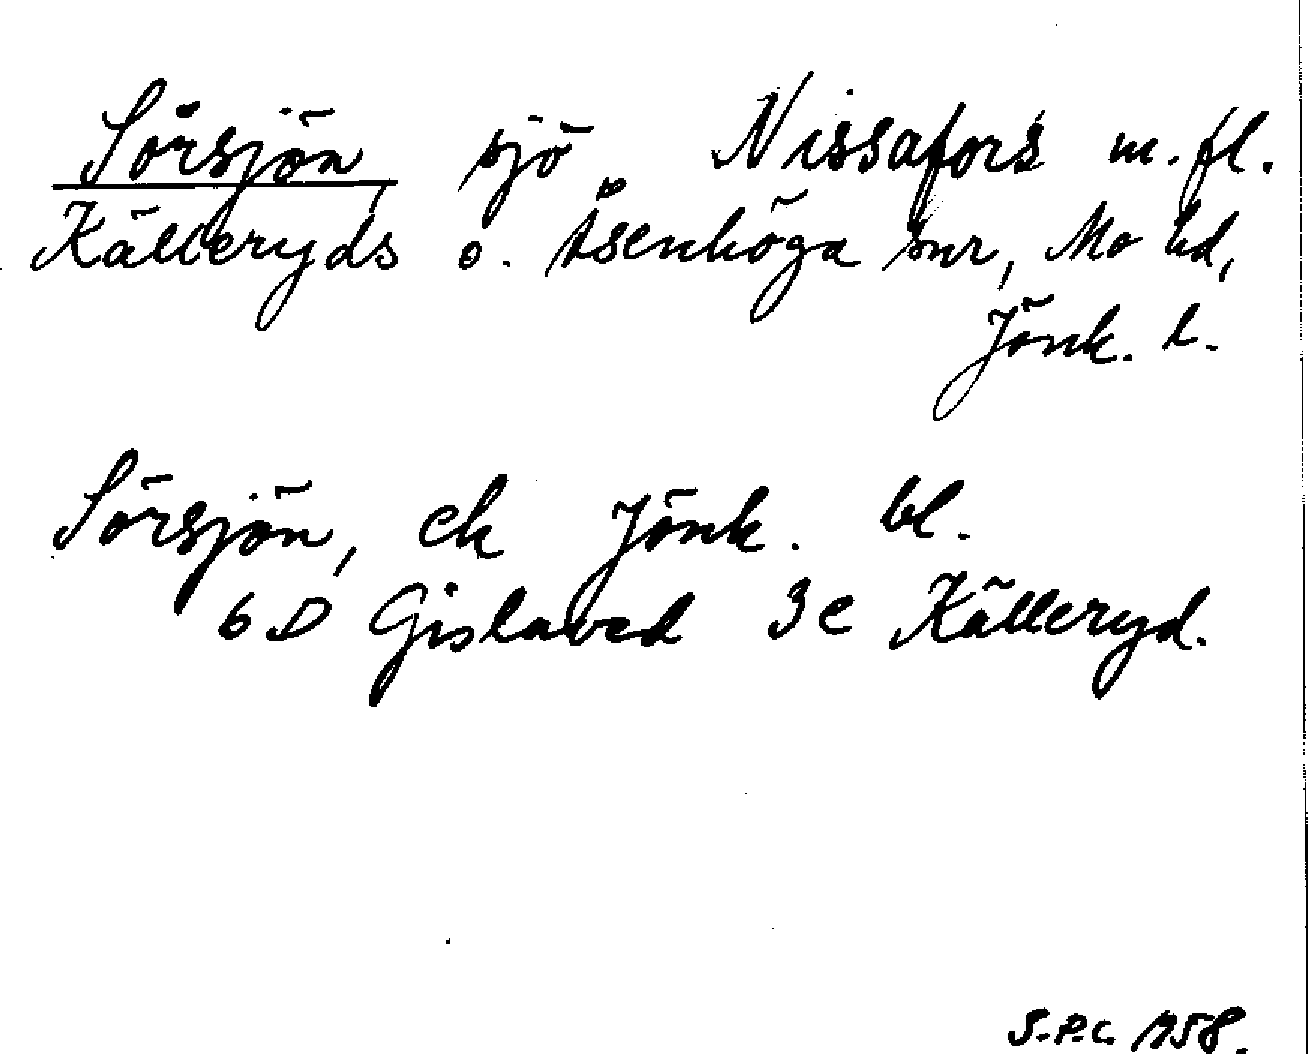 Sörsjön sjö Nissafors m.fl.
Källeryds o. Åsenhöga snr, Mo hd,
Jönk. l.
Sörsjön, ek Jönk. bl.
6 D Gislaved 3e Källeryd.
S.P.C. 1958.